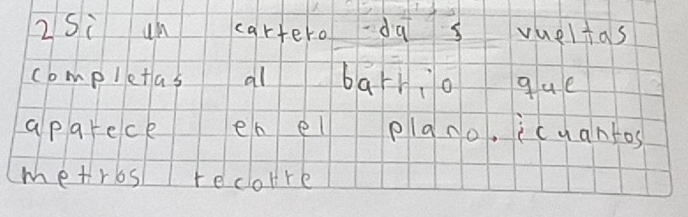 2 Si un cartero da 5 vueltas
completas al barrio que
aparece en el plano. ¿cuantos
metros recorre